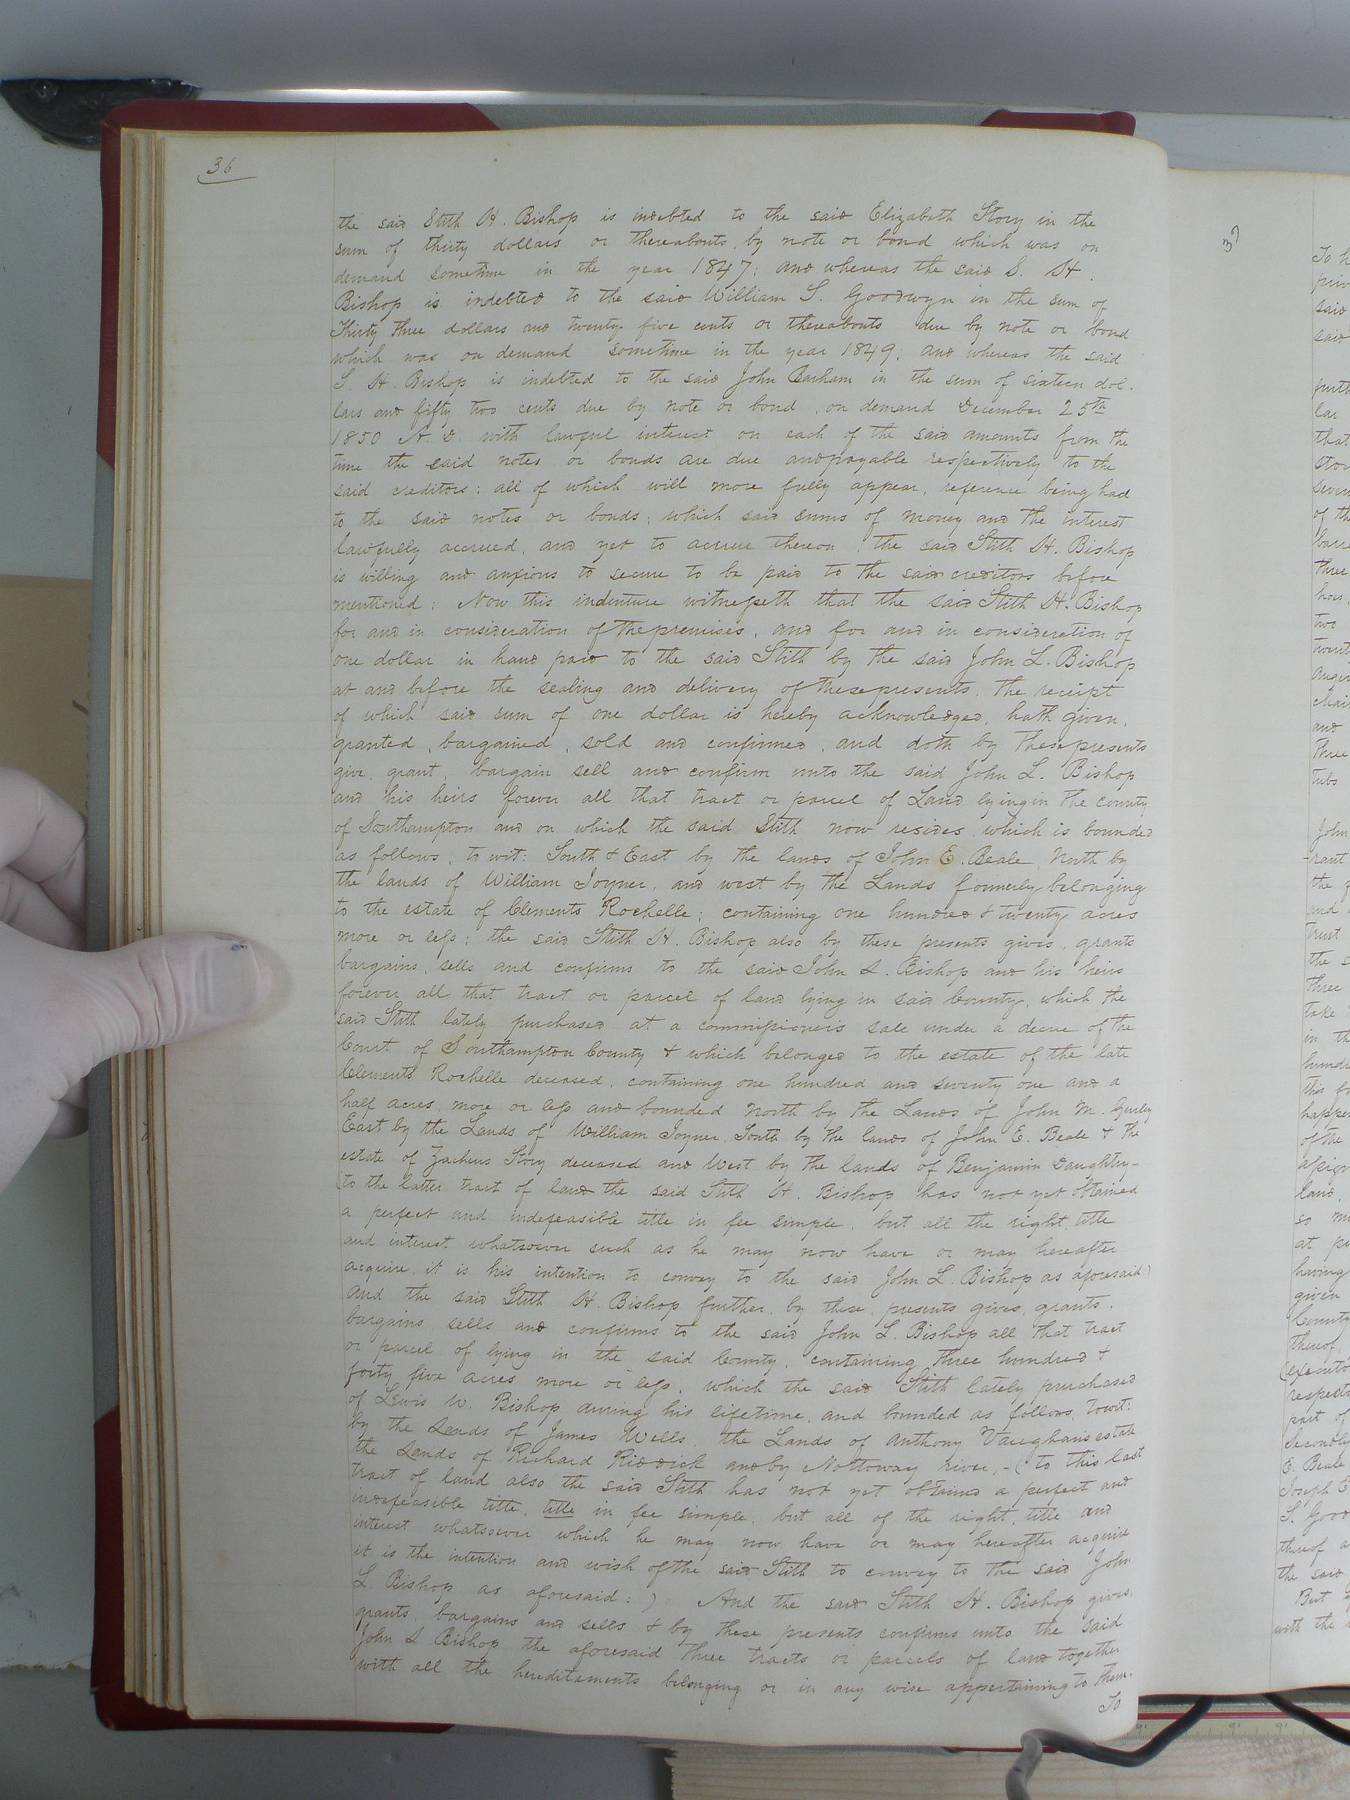 36
the said Stith H. Bishop is indebted to the said Elizabeth Story in the
sum of thirty dollars or thereabouts, by note or bond which was on
demand sometime in the year 1847; and whereas the said S. H.
Bishop is indebted to the said William S. Goodwyn in the sum of
Thirty three dollars and twenty five cents or thereabouts due by note or bond
which was on demand sometime in the year 1849; and whereas the said
S. H. Bishop is indebted to the said John Barham in the sum of sixteen dol-
lars and fifty two cents due by note or bond, on demand December 25th
1850 A. D. with lawful interest on each of the said amounts from the
time the said notes or bonds are due and payable respectively to the
said creditors; all of which will more fully appear, reference being had
to the said notes or bonds; which said sums of money and the interest
lawfully accrued, and yet to accrue thereon, the said Stith H. Bishop
is willing and anxious to secure to be paid to the said creditors before
mentioned; Now this indenture witnesseth that the said Stith H. Bishop
for and in consideration of the premises, and for and in consideration of
one dollar in hand paid to the said Stith by the said John L. Bishop
at and before the sealing and delivery of these presents, the receipt
of which said sum of one dollar is hereby acknowledged, hath given,
granted, bargained, sold and confirmed, and doth by these presents
give, grant, bargain sell and confirm unto the said John L. Bishop
and his heirs forever all that tract or parcel of Land lying in the County
of Southampton and on which the said Stith now resides, which is bounded
as follows, to wit: South & East by the lands of John E. Beale, North by
the lands of William Joyner, and west by the Lands formerly belonging
to the estate of Clements Rochelle; containing one hundred & twenty acres
more or less; the said Stith H. Bishop also by these presents gives, grants
bargains, sells and confirms to the said John L. Bishop and his heirs
forever all that tract or parcel of land lying in said County, which the
said Stith lately purchased at a commissioner's sale under a decree of the
Court of Southampton County & which belonged to the estate of the late
Clements Rochelle deceased, containing one hundred and seventy one and a
half acres, more or less and bounded North by the Lands of John M. Gurley
East by the Lands of William Joyner, South by the lands of John E. Beale & the
estate of Zacheus Story deceased and West by the lands of Benjamin Daughtry-
(to the latter tract of land the said Stith H. Bishop has not yet obtained
a perfect and indefeasible title in fee simple, but all the right, title
and interest whatsoever such as he may now have or may hereafter
acquire, it is his intention to convey to the said John L. Bishop as aforesaid:)
And the said Stith H. Bishop further, by these, presents gives, grants,
bargains sells and confirms to the said John L. Bishop all that tract
or parcel of lying in the said County, containing three hundred &
forty five acres more or less, which the said Stith lately purchased
of Lewis W. Bishop during his lifetime, and bounded as follows, towit:
by the Lands of James Wells, the Lands of Anthony Vaughans estate
the Lands of Richard Riddick and by Nottoway river,-(to this last
tract of land also the said Stith has not yet obtained a perfect and
indefeasible title, title in fee simple, but all of the right, title and
interest whatsoever which he may now have or may hereafter acquire
it is the intention and wish of the said Stith to convey to the said John
L. Bishop as aforesaid:) And the said Stith H. Bishop gives,
grants, bargains and sells & by these presents confirms unto the said
John L Bishop the aforesaid three tracts or parcels of land together
with all the hereditaments belonging or in any wise appertaining to them.
To